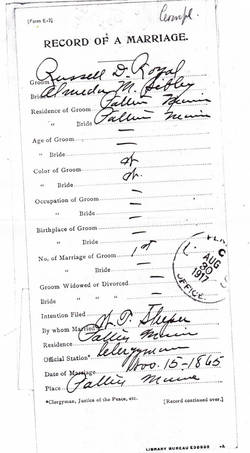 Compl.
[Form E-3]
RECORD OF A MARRIAGE.
Groom Russell D. Royal
Bride Almeda M. Sibley
Residence of Groom Maine
" Bride Maine
Age of Groom —
" Bride —
Color of Groom
" Bride
Occupation of Groom —
" Bride —
Birthplace of Groom —
" Bride —
No. of Marriage of Groom 1st
" Bride —
Groom Widowed or Divorced
Bride " " "
Intention Filed —
By whom Married
Residence Maine
Official Station* Clergyman
Date of Marriage Nov. 15-1865
Place Maine
*Clergyman, Justice of the Peace, etc. [Record continued over.]
AUG
30
1917
OFFICE
LIBRARY BUREAU